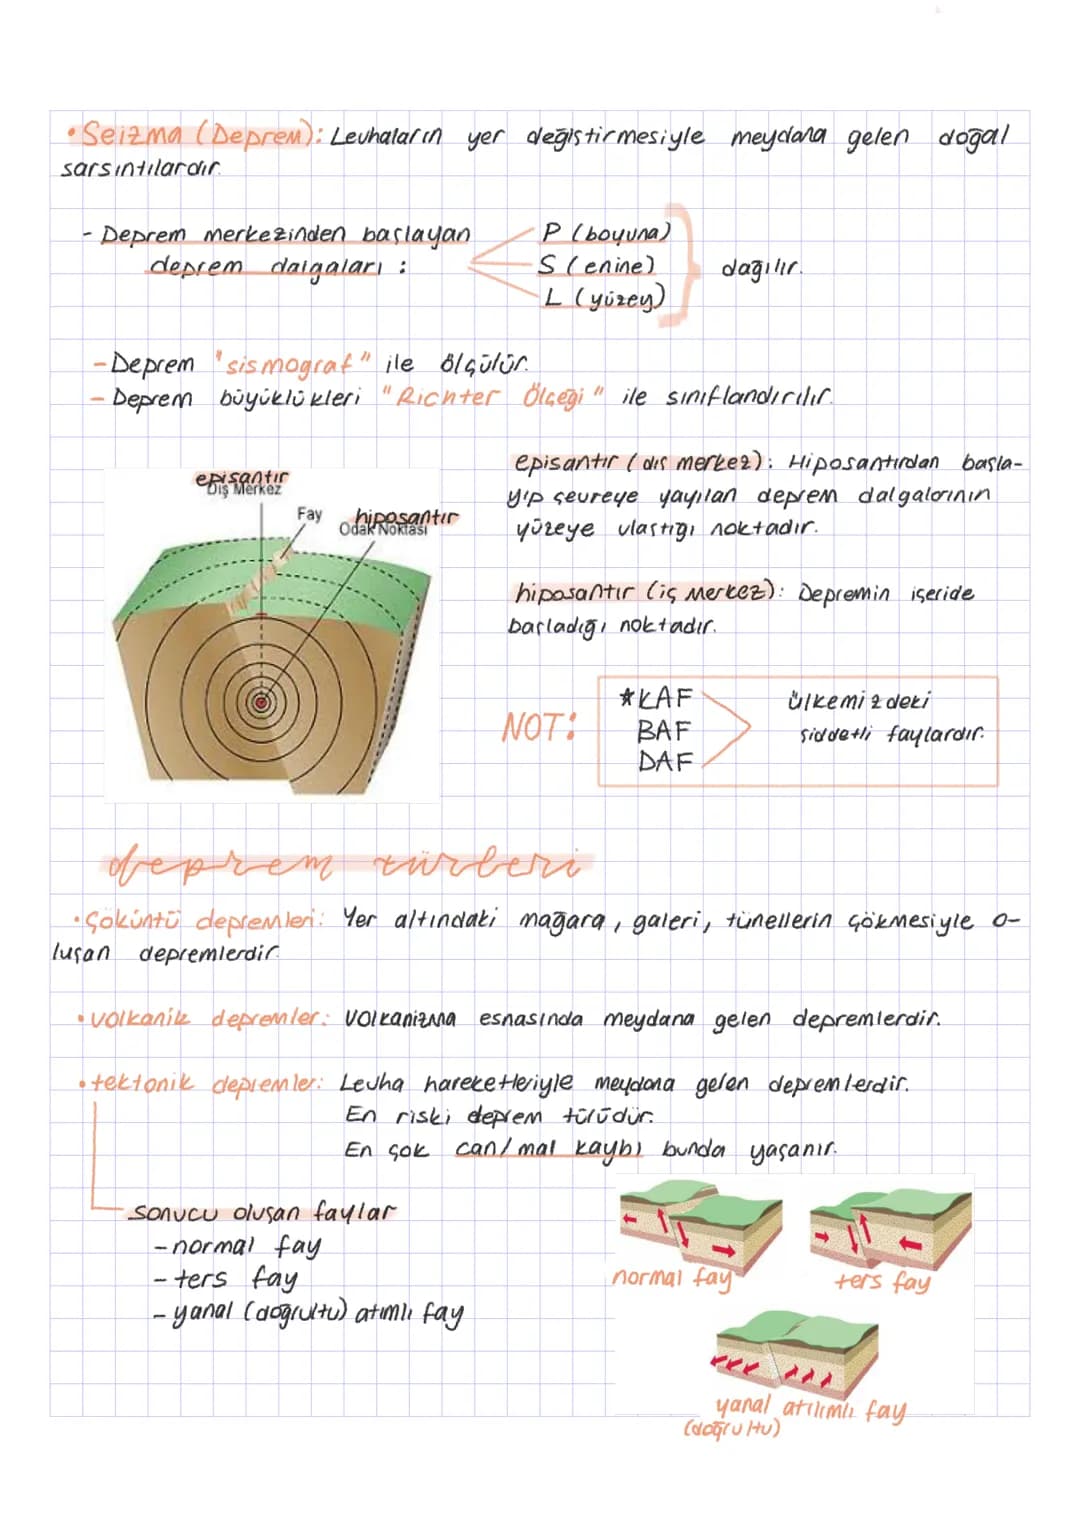 • Seizma (Deprem): Levhaların yer değiştirmesiyle meydana gelen doğal
sarsıntılardır.
- Deprem merkezinden başlayan
deprem dalgaları :
P (boyuna)
S (enine)
L (yüzey)
dağılır.
- Deprem "sismograf" ile ölçülür.
- Deprem büyüklükleri "Richter Ölçeği" ile sınıflandırılır.
episantır
Dış Merkez
Fay
hiposantır
Odak Noktası
episantır (dış merkez): Hiposantırdan başla-
yıp çevreye yayılan deprem dalgalarının
yüzeye ulaştığı noktadır.
hiposantır (iç merkez): Depremin içeride
başladığı noktadır.
NOT:
*KAF
BAF
DAF
ülkemizdeki
şiddetli faylardır.
deprem türleri
• Çöküntü depremleri: Yer altındaki mağara, galeri, tünellerin çökmesiyle o-
luşan depremlerdir.
• volkanik depremler: Volkanizma esnasında meydana gelen depremlerdir.
• tektonik depremler: Levha hareketleriyle meydana gelen depremlerdir.
En riski deprem türüdür.
En çok can/mal kaybı bunda yaşanır.
sonucu oluşan faylar
- normal fay
- ters fay
- yanal (doğrultu) atımlı fay
normal fay
ters fay
yanal atılımlı fay
(doğrultu)